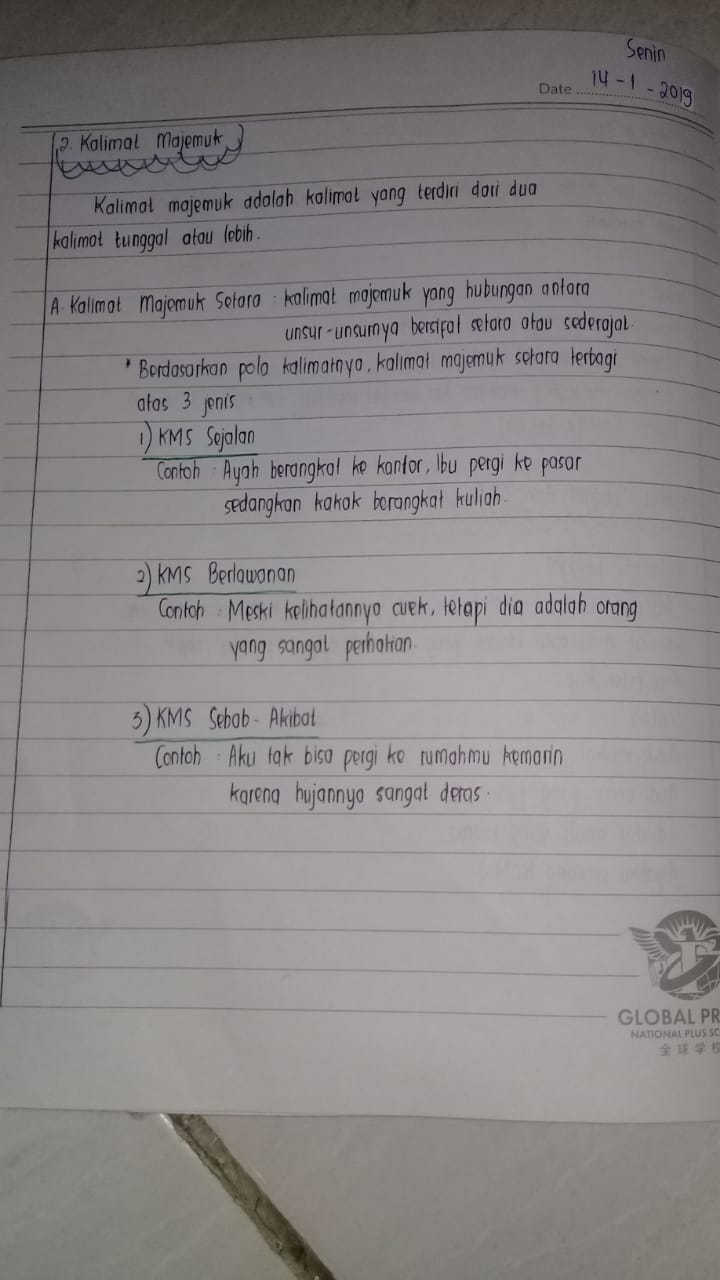 Senin
Date 14-1-2019
2. Kalimat Majemuk
Kalimat majemuk adalah kalimat yang terdiri dari dua
kalimat tunggal atau lebih.
A. Kalimat Majemuk Setara : kalimat majemuk yang hubungan antara
unsur-unsurnya bersifat setara atau sederajat.
* Berdasarkan pola kalimatnya, kalimat majemuk setara terbagi
atas 3 jenis
1) KMS Sejalan
Contoh : Ayah berangkat ke kantor, Ibu pergi ke pasar
sedangkan kakak berangkat kuliah.
2) KMS Berlawanan
Contoh : Meski kelihatannya cuek, tetapi dia adalah orang
yang sangat perhatian.
3) KMS Sebab - Akibat
Contoh : Aku tak bisa pergi ke rumahmu kemarin
karena hujannya sangat deras.
GLOBAL PR
NATIONAL PLUS SC
全球学校